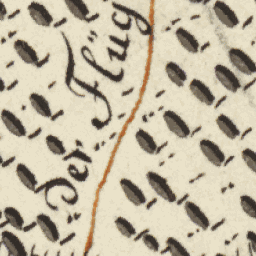 Der Flüg